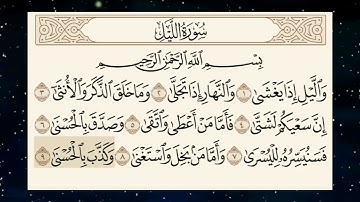 سُورَةُ اللَّيْلِ
بِسْمِ اللَّهِ الرَّحْمَٰنِ الرَّحِيمِ
وَالَّيْلِ إِذَا يَغْشَىٰ ١ وَالنَّهَارِ إِذَا تَجَلَّىٰ ٢ وَمَا خَلَقَ الذَّكَرَ وَالْأُنثَىٰ ٣
إِنَّ سَعْيَكُمْ لَشَتَّىٰ ٤ فَأَمَّا مَنْ أَعْطَىٰ وَاتَّقَىٰ ٥ وَصَدَّقَ بِالْحُسْنَىٰ ٦
فَسَنُيَسِّرُهُ لِلْيُسْرَىٰ ٧ وَأَمَّا مَنْ بَخِلَ وَاسْتَغْنَىٰ ٨ وَكَذَّبَ بِالْحُسْنَىٰ ٩